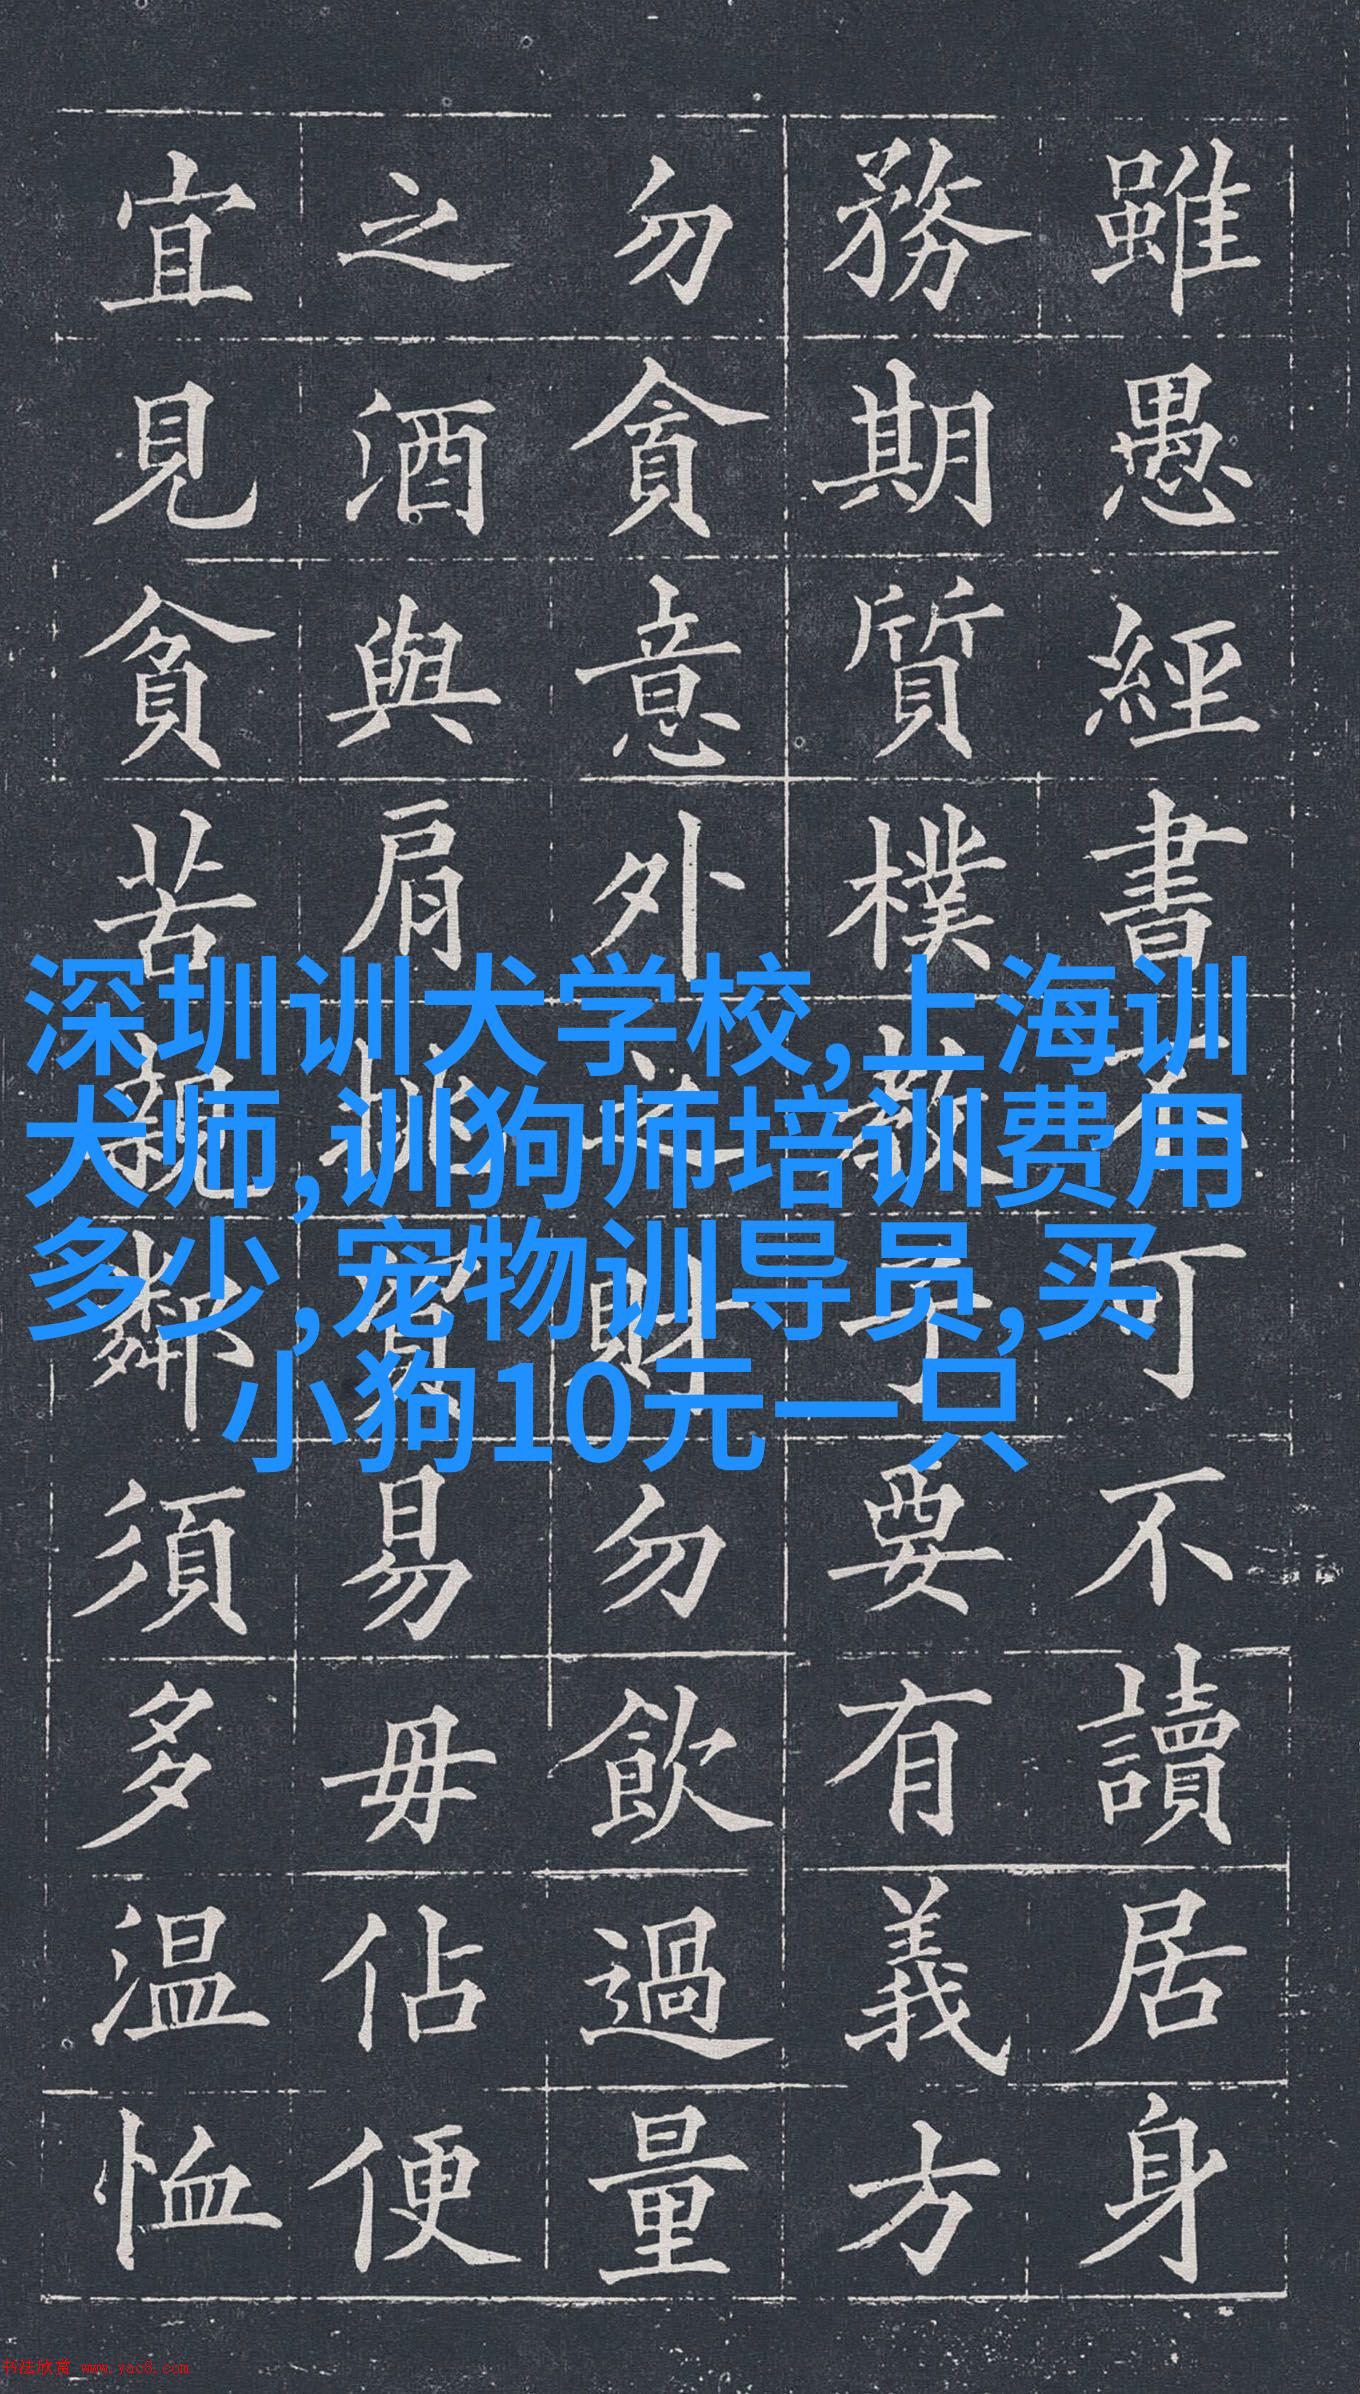 雖愚經書不可不讀居身
務期質樸教子要有義方
勿貪意外之財勿飲過量
之酒與肩挑貿易毋佔便
宜見貧苦親鄰須多温恤
深圳训犬学校,上海训
犬师,训狗师培训费用
多少,宠物训导员,买
小狗10元一只
书法欣赏 www.yac8.com